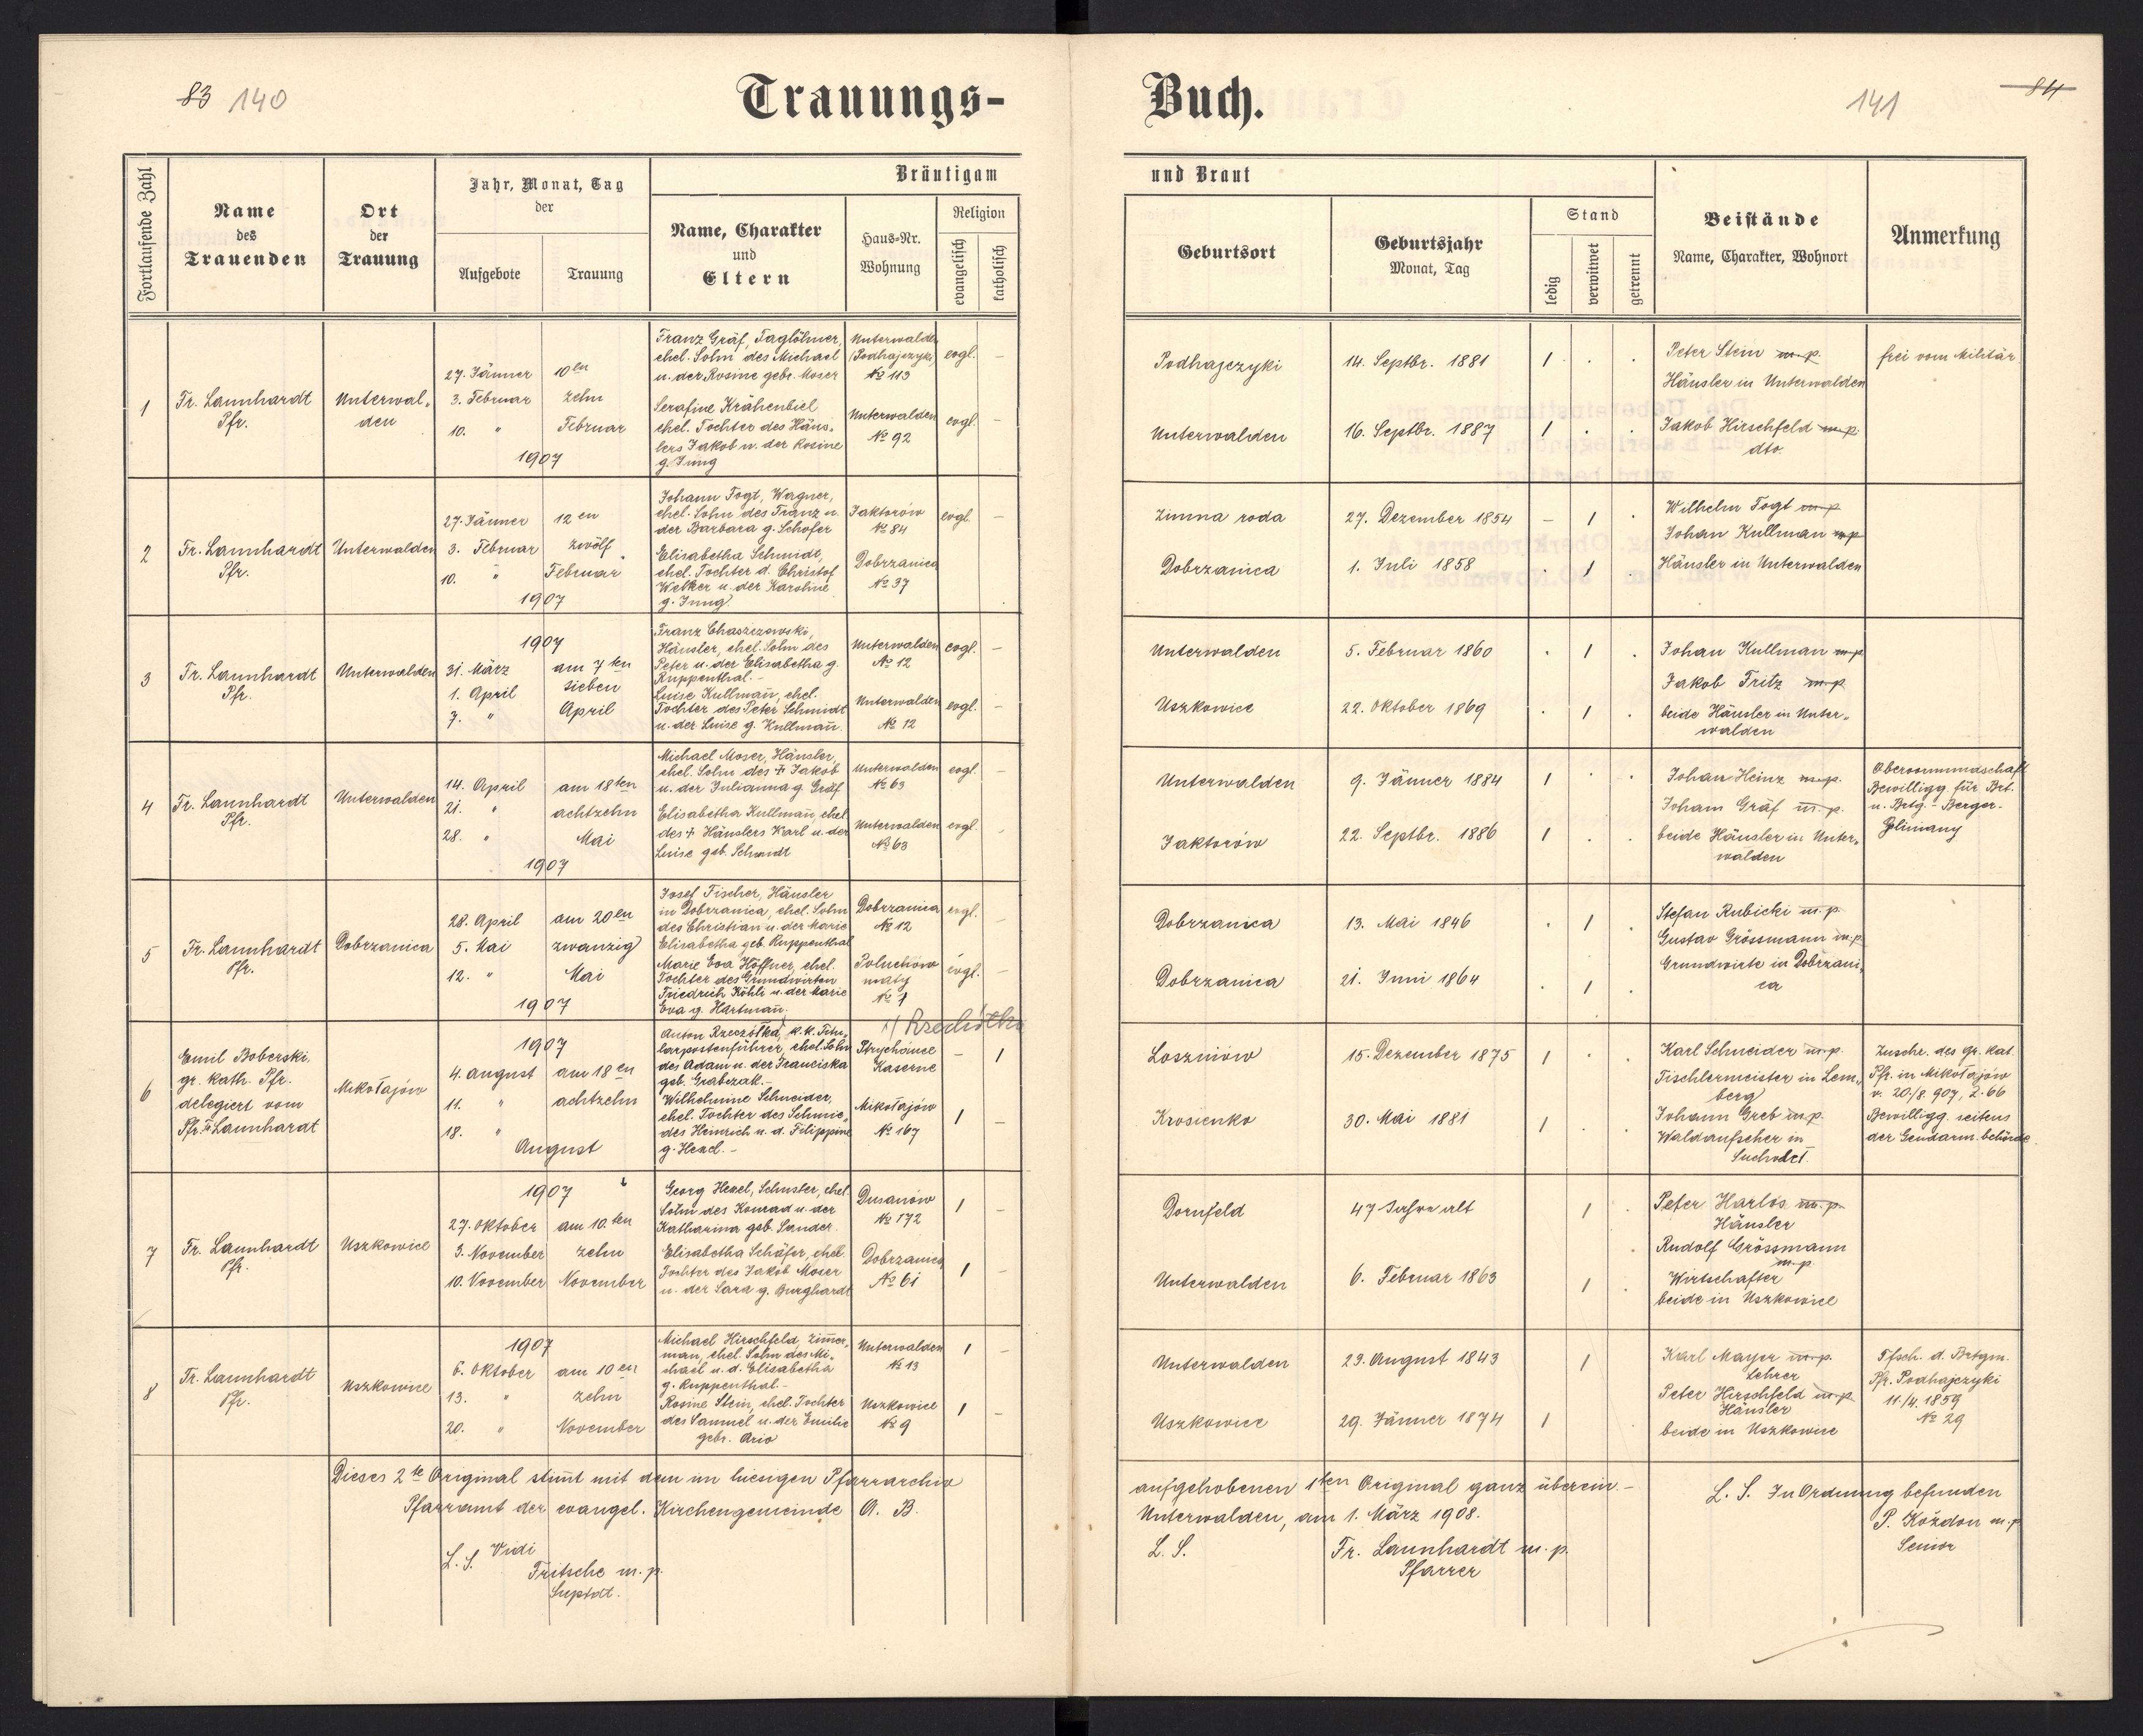 83 140
Trauungs-
Buch.
141 84
Fortlaufende Zahl
Name
des
Trauenden
Ort
der
Trauung
Jahr, Monat, Tag
der
Aufgebote
Trauung
Bräutigam
Name, Charakter
und
Eltern
Haus-Nr.
Wohnung
Religion
evangelisch
katholisch
und Braut
Geburtsort
Geburtsjahr
Monat, Tag
Stand
ledig
verwitwet
getrennt
Beistände
Name, Charakter, Wohnort
Anmerkung
1
Fr. Launhardt
Pfr.
Unterwal-
den
27. Jänner
3. Februar
10. "
10en
zehn
Februar
1907
Franz Gräf, Taglöhner,
ehel. Sohn des Michael
u. der Rosine gebr. Moser
Unterwalde
(Podhajczyki)
№ 113
evgl. -
Serafine Krähenbiel
ehel. Tochter des Häus-
lers Jakob u. der Rosine
g. Jung
Unterwalden
№ 92
evgl. -
Podhajczyki
14. Septbr. 1881
1 . .
Unterwalden
16. Septbr. 1887
1 . .
Peter Stein m.p.
Häusler in Unterwalden
Jakob Hirschfeld m.p.
dto.
frei vom Militär
2
Fr. Launhardt
Pfr.
Unterwalden
27. Jänner
3. Februar
10. "
12en
zwölf
Februar
1907
Johann Fogt, Wagner,
ehel. Sohn des Franz u.
der Barbara g. Schofer
Jaktorów
№ 84
evgl. -
Elisabetha Schmidt,
ehel. Tochter d. Christof
Welker u. der Karoline
g. Jung
Dobrzanica
№ 37
Zimna woda
27. Dezember 1854
- 1 .
Dobrzanica
1. Juli 1858
. 1 .
Wilhelm Fogt m.p.
Johan Kullman m.p.
Häusler in Unterwalden
3
Fr. Launhardt
Pfr.
Unterwalden
1907
31. März
1. April
7. "
am 7ten
sieben
April
Franz Chaszczowski,
Häusler, ehel. Sohn des
Peter u. der Elisabetha g.
Ruppenthal.-
Unterwalden
№ 12
evgl. -
Luise Kullmañ, ehel.
Tochter des Peter Schmidt
u. der Luise g. Kullmañ.
Unterwalden
№ 12
evgl. -
Unterwalden
5. Februar 1860
. 1 .
Uszkowice
22. Oktober 1869
. 1 .
Johan Kullman m.p.
Jakob Fritz m.p.
beide Häusler in Unter-
walden
4
Fr. Launhardt
Pfr.
Unterwalden
14. April
21. "
28. "
am 18ten
achtzehn
Mai
1907
Michael Moser, Häusler,
ehel. Sohn des + Jakob
u. der Julianna g. Gräf
Unterwalden
№ 63
evgl. -
Elisabetha Kullmañ, ehel.
des + Häuslers Karl u. der
Luise geb. Schmidt
Unterwalden
№ 63
evgl. -
Unterwalden
9. Jänner 1884
1 . .
Jaktorów
22. Septbr. 1886
1 . .
Johan Heinz m.p.
Joham Gräf m.p.
beide Häusler in Unter-
walden
Obervormundschaft
Bewilligg. für Brt.
u. Brtg.- Bezger.
Gliniany
5
Fr. Launhardt
Pfr.
Dobrzanica
28. April
5. Mai
12. "
am 20en
zwanzig
Mai
1907
Josef Fischer, Häusler
in Dobrzanica, ehel. Sohn
des Christian u. der Marie
Elisabetha geb. Ruppenthal
Dobrzanica
№ 12
evgl. -
Marie Eva Höffner, ehel.
Tochter des Grundwirten
Friedrich Köhli u. der Marie
Eva g. Hartmañ.
Poluchów
mały
№ 1
evgl. -
Dobrzanica
13. Mai 1846
. 1 .
Dobrzanica
21. Juni 1864
. 1 .
Stefan Rubicki m.p.
Gustav Grössmann m.p.
Grundwirte in Dobrzani-
ca
6
Emil Boberski
gr. kath. Pfr.
delegiert vom
Pfr. Fr. Launhardt
Mikołajów
1907
4. August
11. "
18. "
am 18en
achtzehn
August
x) Rzechółka
Anton Rzeczółka, k.k. Titu-
larpostenführer, ehel. Sohn
des Adam u. der Franciska
geb. Grabczak.-
Strychańce
Kaserne
- 1
Wilhelmine Schneider,
ehel. Tochter des Schmie-
des Heinrich u. d. Filippine
g. Hexel.-
Mikołajów
№ 167
1 -
Loszniów
15. Dezember 1875
1 . .
Krosienko
30. Mai 1881
1 . .
Karl Schneider m.p.
Tischlermeister in Lem-
berg
Johann Greb m.p.
Waldaufseher in
Suchodół
Zuschr. des gr. kat.
Pfr. in Mikołajów
v. 20./8. 907, Z. 66
Bewilligg. seitens
der Gendarm. behörde.
7
Fr. Launhardt
Pfr.
Uszkowice
1907
27. Oktober
3. November
10. November
am 10.ten
zehn
November
Georg Hexel, Schuster, ehel.
Sohn des Konrad u. der
Katharina geb. Sander.
Dusanów
№ 172
1 -
Elisabetha Schäfer, ehel.
Tochter des Jakob Moser
u. der Sara g. Burghardt
Dobrzanica
№ 61
1 -
Dornfeld
47 Jahre alt
1 .
Unterwalden
6. Februar 1863
1 .
Peter Harlos m.p.
Häusler
Rudolf Grössmann
m.p.
Wirtschafter
beide in Uszkowice
8
Fr. Launhardt
Pfr.
Uszkowice
1907
6. Oktober
13. "
20. "
am 10en
zehn
November
Michael Hirschfeld, Zim̃er-
man, ehel. Sohn des Mi-
chael u. d. Elisabetha
g. Ruppenthal.-
Unterwalden
№ 13
1 -
Rosine Stein, ehel. Tochter
des Samuel u. der Emilie
gebr. Ario
Uszkowice
№ 9
1 -
Unterwalden
29. August 1843
1
Uszkowice
29. Jänner 1874
1
Karl Mayer m.p.
Lehrer
Peter Hirschfeld m.p.
Häusler
beide in Uszkowice
Tfsch. d. Brtgm.
Pfr. Podhajczyki
11./4. 1859
№ 29
Dieses 2te Original stim̃t mit dem im hiesigen Pfarrarchiv
aufgehobenen 1ten Original ganz überein.-
Pfarramt der evangel. Kirchengemeinde A. B.
Unterwalden, am 1. März 1908.
L. S. Vidi
Fritsche m. p.
Suptdt.
L. S.
Fr. Launhardt m. p.
Pfarrer
L. S. In Ordnung befunden
P. Kożdon m.p.
Senior